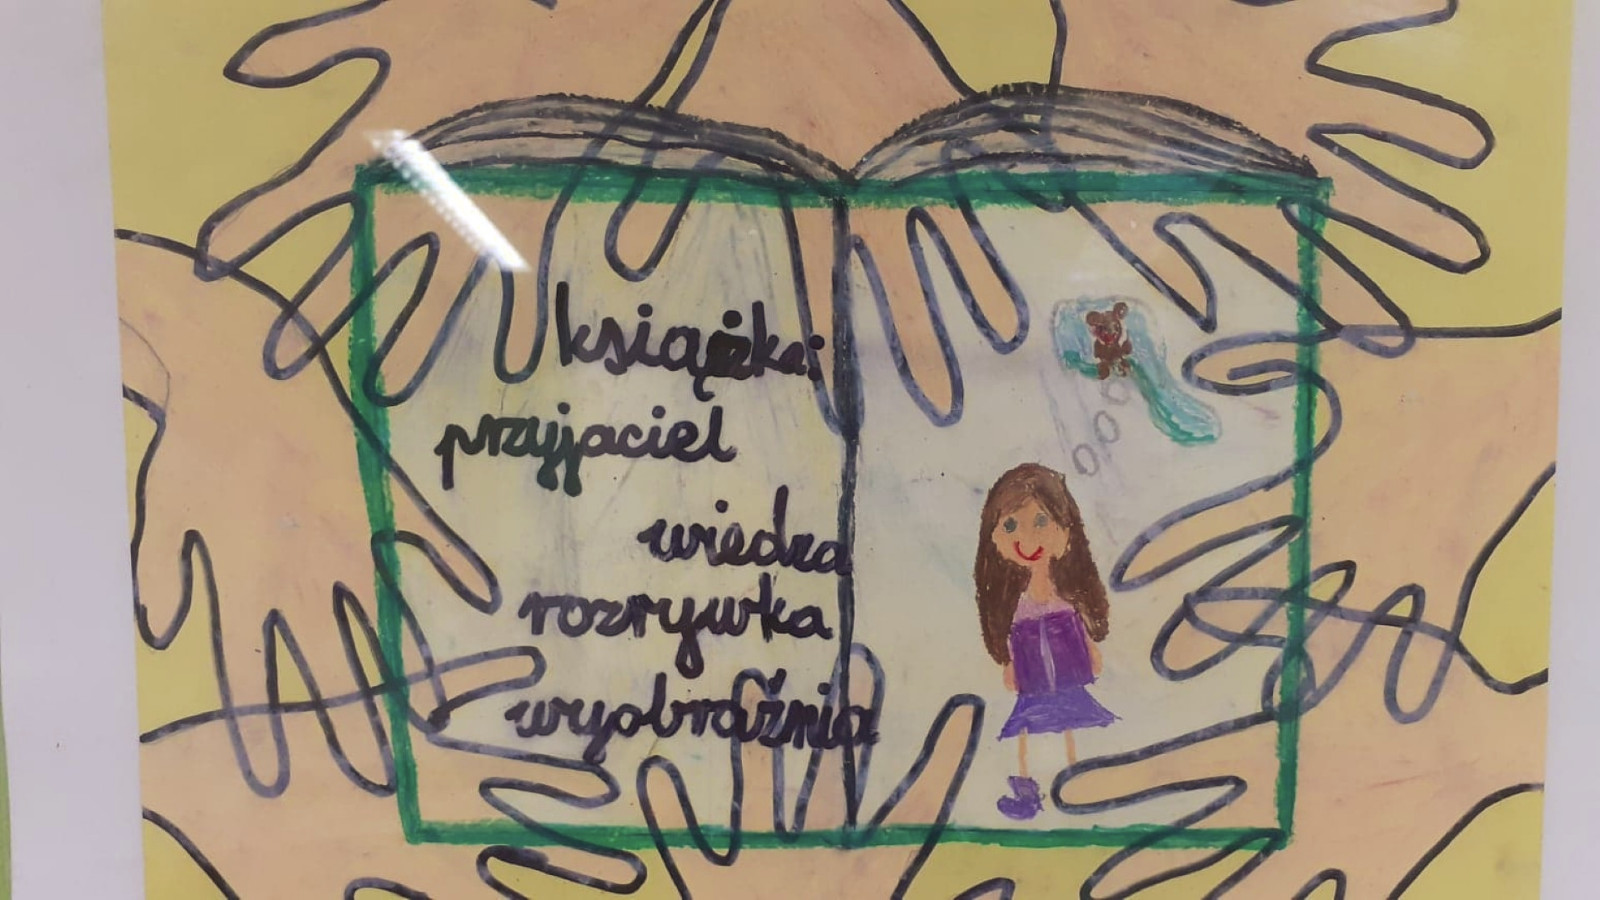 książka:
przyjaciel
wiedza
rozrywka
wyobraźnia